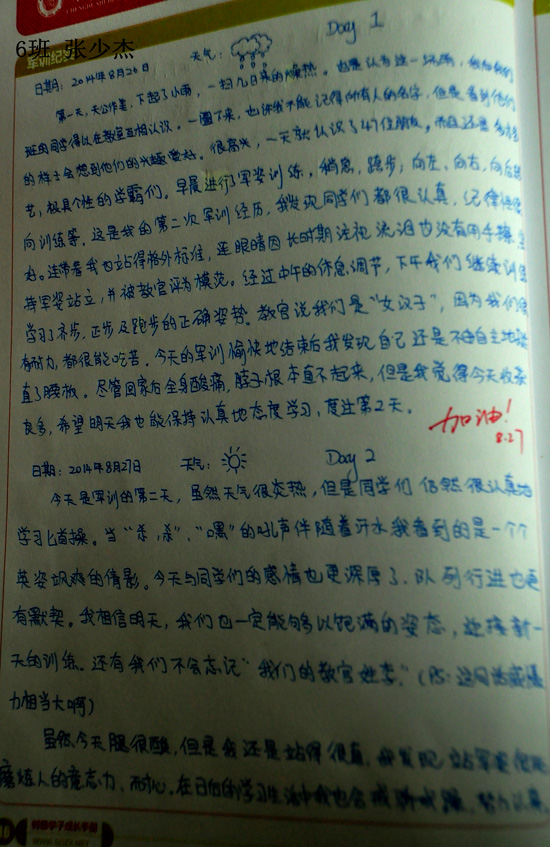 6班 张少杰
军训纪实
Day 1
日期：2014年8月26日 天气：
第一天，天公作美，下起了小雨，一扫几日来的燥热。也是认为这一场雨，我和我们
班的同学得以在教室互相认识。一圈下来，也许我不能记得所有人的名字，但是看到他们
的样子会想到他们的兴趣爱好。很高兴，一天就认识了47位朋友，而且还是多才多
艺，极具个性的学霸们。早晨进行了军姿训练，稍息，跨步，向左、向右、向后转
向训练等。这是我的第二次军训经历，我发现同学们都很认真，纪律性很
好。连带着我也站得格外标准，连眼睛因长时期注视流泪也没有用手擦，坚
持军姿站立，并被教官评为模范。经过中午的休息调节，下午我们继续训练
学习了齐步，正步及跑步的正确姿势。教官说我们是“女汉子”，因为我们很
有耐力，都很能吃苦。今天的军训愉快地结束后我发现自己还是不由自主地挺
直了腰板。尽管回家后全身酸痛，脖子根本直不起来，但是我觉得今天收获
良多，希望明天我也能保持认真地态度学习，度过第2天。
加油！
8.27
日期：2014年8月27日 天气： Day 2
今天是军训的第二天，虽然天气很炎热，但是同学们仍然很认真地
学习匕首操。当“杀，杀”、“嘿”的吼声伴随着汗水我看到的是一个个
英姿飒爽的倩影。今天与同学们的感情也更深厚了，队列行进也更
有默契。我相信明天，我们也一定能够以饱满的姿态，迎接新一
天的训练。还有我们不会忘记“我们的教官姓李。”（PS：这句话威慑
力相当大啊）
虽然今天腿很酸，但是我还是站得很直，我发现站军姿很能
磨炼人的意志力，耐心。在日后的学习生活中我也会戒骄戒躁，努力认真
16 树德学子成长手册